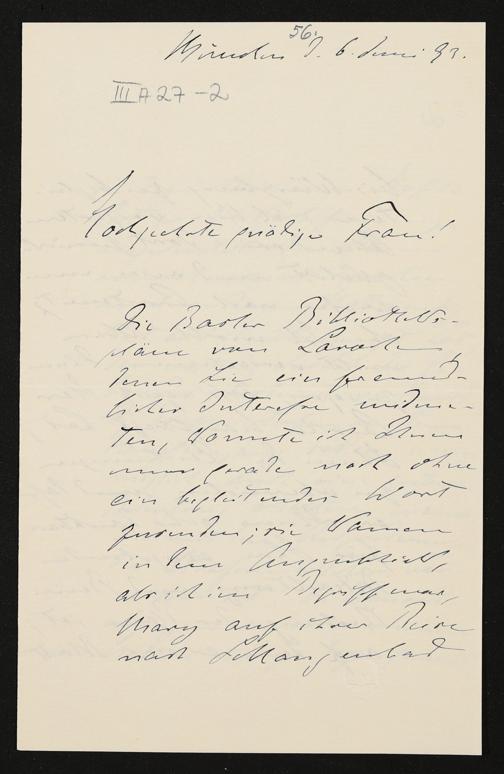 56.
München d. 6. Juni 93.
III A 27 - 2
Hochgeehrte gnädige Frau!
Die Basler Bibliotheks-
pläne von
denen Sie ein freund-
liches Interesse widme-
ten, konnte ich Ihnen
nur gerade noch ohne
ein begleitendes Wort
zusenden; sie kamen
in dem Augenblick,
als ich im Begriff war,
Mary auf ihrer Reise
nach Schlangenbad